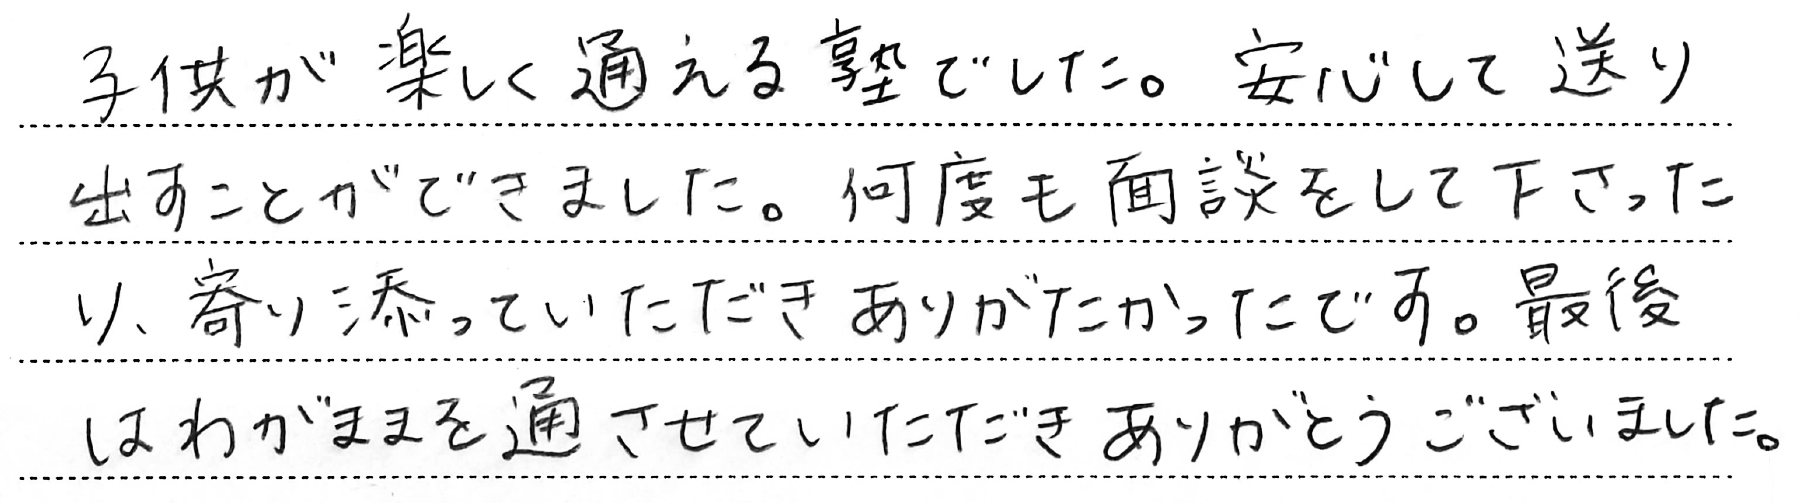 子供が楽しく通える塾でした。安心して送り
出すことができました。何度も面談をして下さった
り、寄り添っていただきありがたかったです。最後
はわがままを通させていただきありがとうございました。